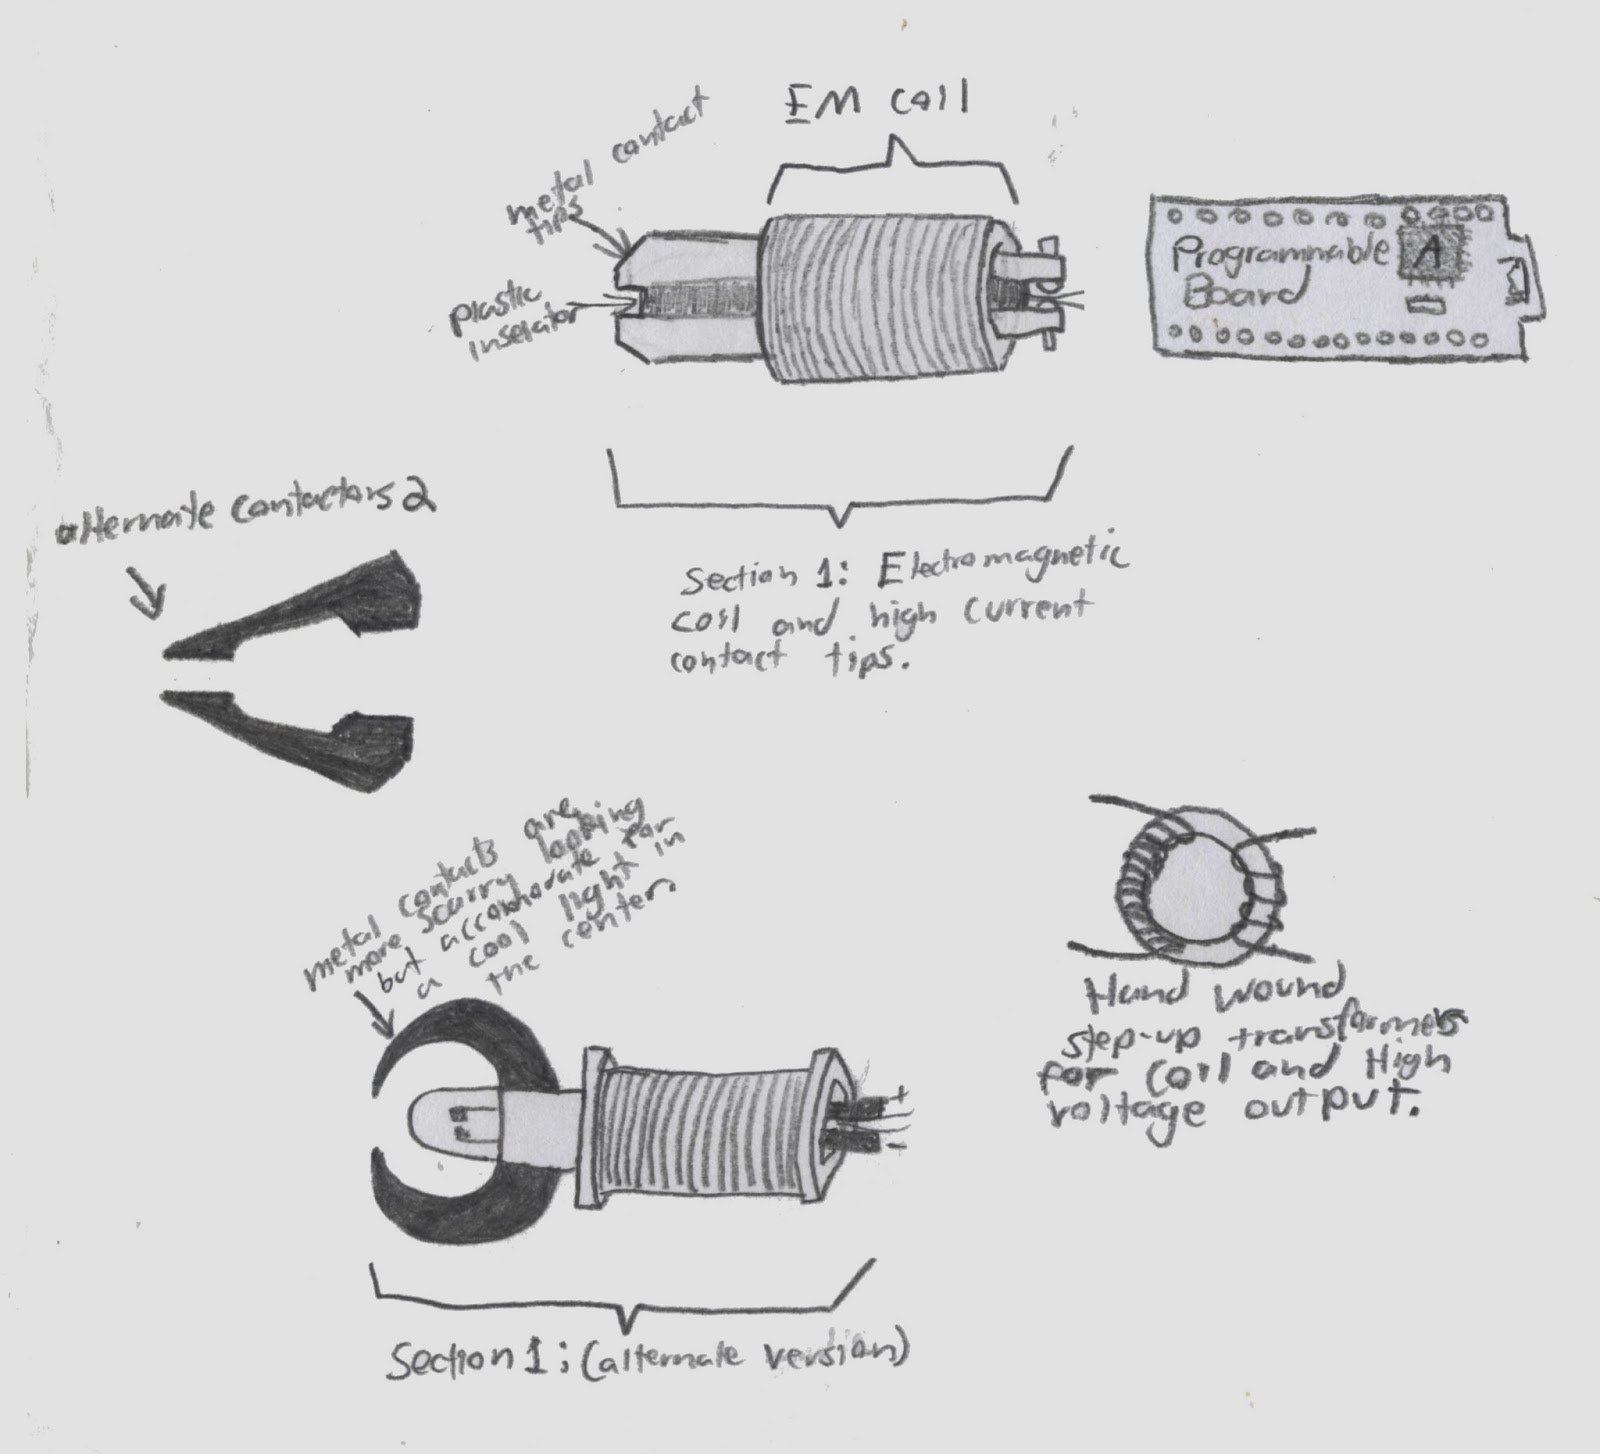 EM coil
metal contact
tips
plastic
inselator
Programmable
Board
A
Section 1: Electromagnetic
coil and high current
contact tips.
alternate contactors 2
metal contacts are
more scarry looking
but accomhodate for
a cool light in
the center.
Hand wound
step-up transformers
for coil and High
voltage output.
+
-
Section 1: (alternate version)